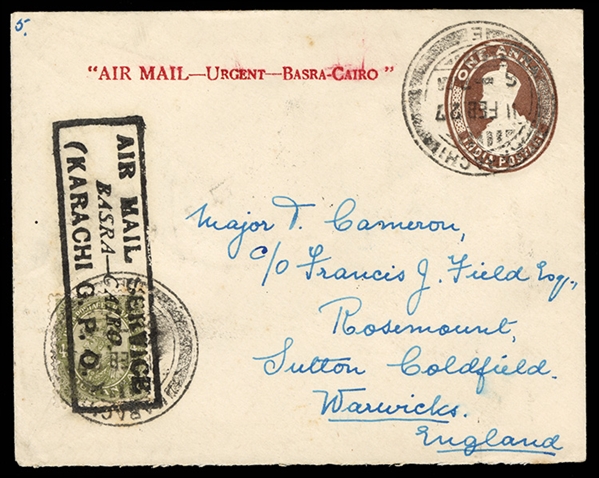 5.
"AIR MAIL—URGENT—BASRA-CAIRO"
ONE ANNA
INDIA POSTAGE
11 FEB 27
AIR MAIL SERVICE
BASRA—CAIRO
(KARACHI G.P.O.
Major D. Cameron,
c/o Francis J. Field Esq.,
Rosemount,
Sutton Coldfield.
Warwicks.
England